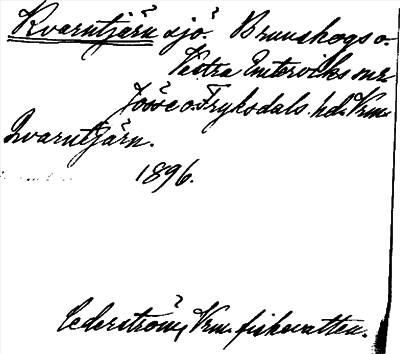 Kvarntjärn sjö. Brunskogs o.
Västra Emterviks snr
Jösse o. Fryksdals hd. Vrm.
Qvarntjärn.
1896.
Cederström, Vrm. fiskevatten.